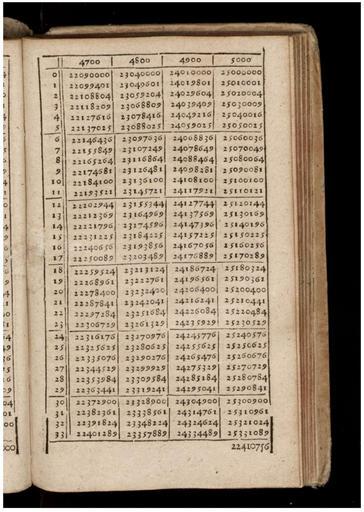 4700 4800 4900 5000
0 22090000 23040000 24010000 25000000
1 22099401 23049601 24019801 25010001
2 22108804 23059204 24029604 25020004
3 22118209 23068809 24039409 25030009
4 22127616 23078416 24049216 25040016
5 22137025 23088025 24059025 25050025
6 22146436 23097636 24068836 25060036
7 22155849 23107249 24078649 25070049
8 22165264 23116864 24088464 25080064
9 22174681 23126481 24098281 25090081
10 22184100 23136100 24108100 25100100
11 22193521 23145721 24117921 25110121
12 22202944 23155344 24127744 25120144
13 22212369 23164969 24137569 25130169
14 22221796 23174596 24147396 25140196
15 22231225 23184225 24157225 25150225
16 22240656 23193856 24167056 25160256
17 22250089 23203489 24176889 25170289
18 22259524 23213124 24186724 25180324
19 22268961 23222761 24196561 25190361
20 22278400 23232400 24206400 25200400
21 22287841 23242041 24216241 25210441
22 22297284 23251684 24226084 25220484
23 22306729 23261329 24235929 25230529
24 22316176 23270976 24245776 25240576
25 22325625 23280625 24255625 25250625
26 22335076 23290276 24265476 25260676
27 22344529 23299929 24275329 25270729
28 22353984 23309584 24285184 25280784
29 22363441 23319241 24295041 25290841
30 22372900 23328900 24304900 25300900
31 22382361 23338561 24314761 25310961
32 22391824 23348224 24324624 25321024
33 22401289 23357889 24334489 25331089
22410756